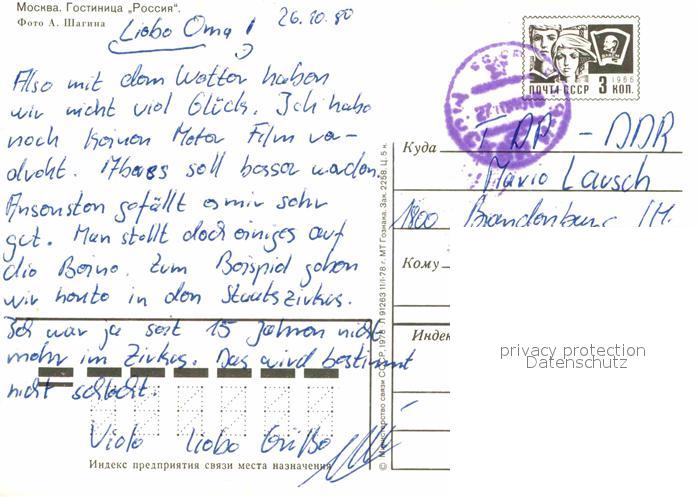 Москва. Гостиница „Россия".
Фото А. Шагина
26.10.80
Liebe Oma!
Also mit dem Wetter haben
wir nicht viel Glück. Ich habe
noch keinen Meter Film ver-
dreht. soll besser werden.
Ansonsten gefällt es mir sehr
gut. Man stellt doch einiges auf
die Beine. Zum Beispiel gehen
wir heute in den Staatszirkus.
Ich war ja seit 15 Jahren nicht
mehr im Zirkus. Das wird bestimmt
nicht schlecht.
Viele liebe Grüße
Индекс предприятия связи места назначения
© Министерство связи СССР, 1978 г. Л 91263 11/I-78 г. МТ Гознака. Зак. 2258. Ц. 5 к.
ПОЧТА СССР 3 КОП.
1966
Куда
DDR
Mario Lausch
1800 Brandenburg /H.
Кому
Индек
privacy protection
Datenschutz